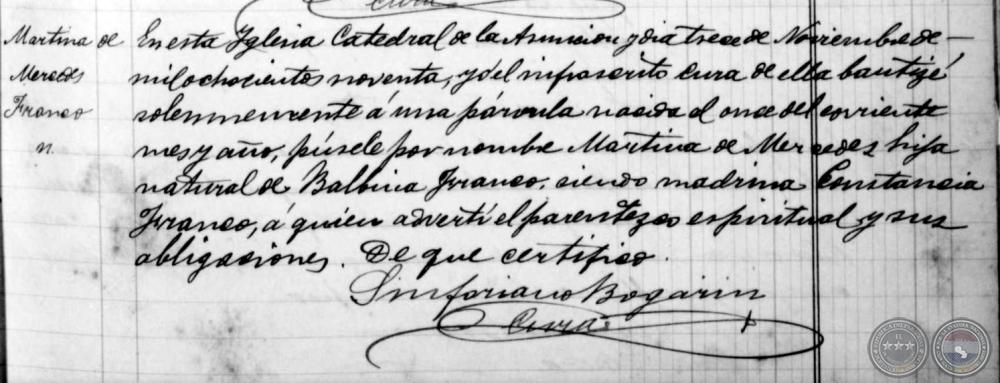 Cura
Martina de
Mercedes
Franco
n.
En esta Yglesia Catedral de la Asuncion y dia trece de Noviembre de —
mil ochocientos noventa, yó el infrascrito cura de ella bautizé
solemnemente á una párvula nacida el once del corriente
mes y año, púsele por nombre Martina de Mercedes hija
natural de Balbina Franco, siendo madrina Constancia
Franco, á quien advertí el parentezco espiritual y sus
obligaciones. De que certifico.
Sinforiano Bogarin
Cura